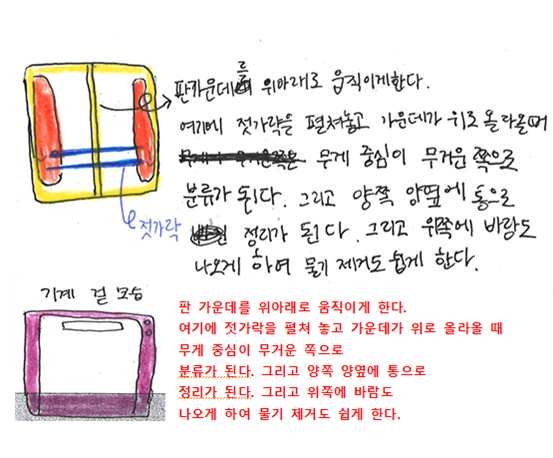 판 가운데를 위아래로 움직이게한다.
여기에 젓가락을 펼쳐놓고 가운데가 위로 올라올때
무게 중심이 무거운 쪽으로
분류가 된다. 그리고 양쪽 양옆에 통으로
정리가 된다. 그리고 위쪽에 바람도
나오게 하여 물기 제거도 쉽게 한다.
젓가락
기계 겉 모습
판 가운데를 위아래로 움직이게 한다.
여기에 젓가락을 펼쳐 놓고 가운데가 위로 올라올 때
무게 중심이 무거운 쪽으로
분류가 된다. 그리고 양쪽 양옆에 통으로
정리가 된다. 그리고 위쪽에 바람도
나오게 하여 물기 제거도 쉽게 한다.